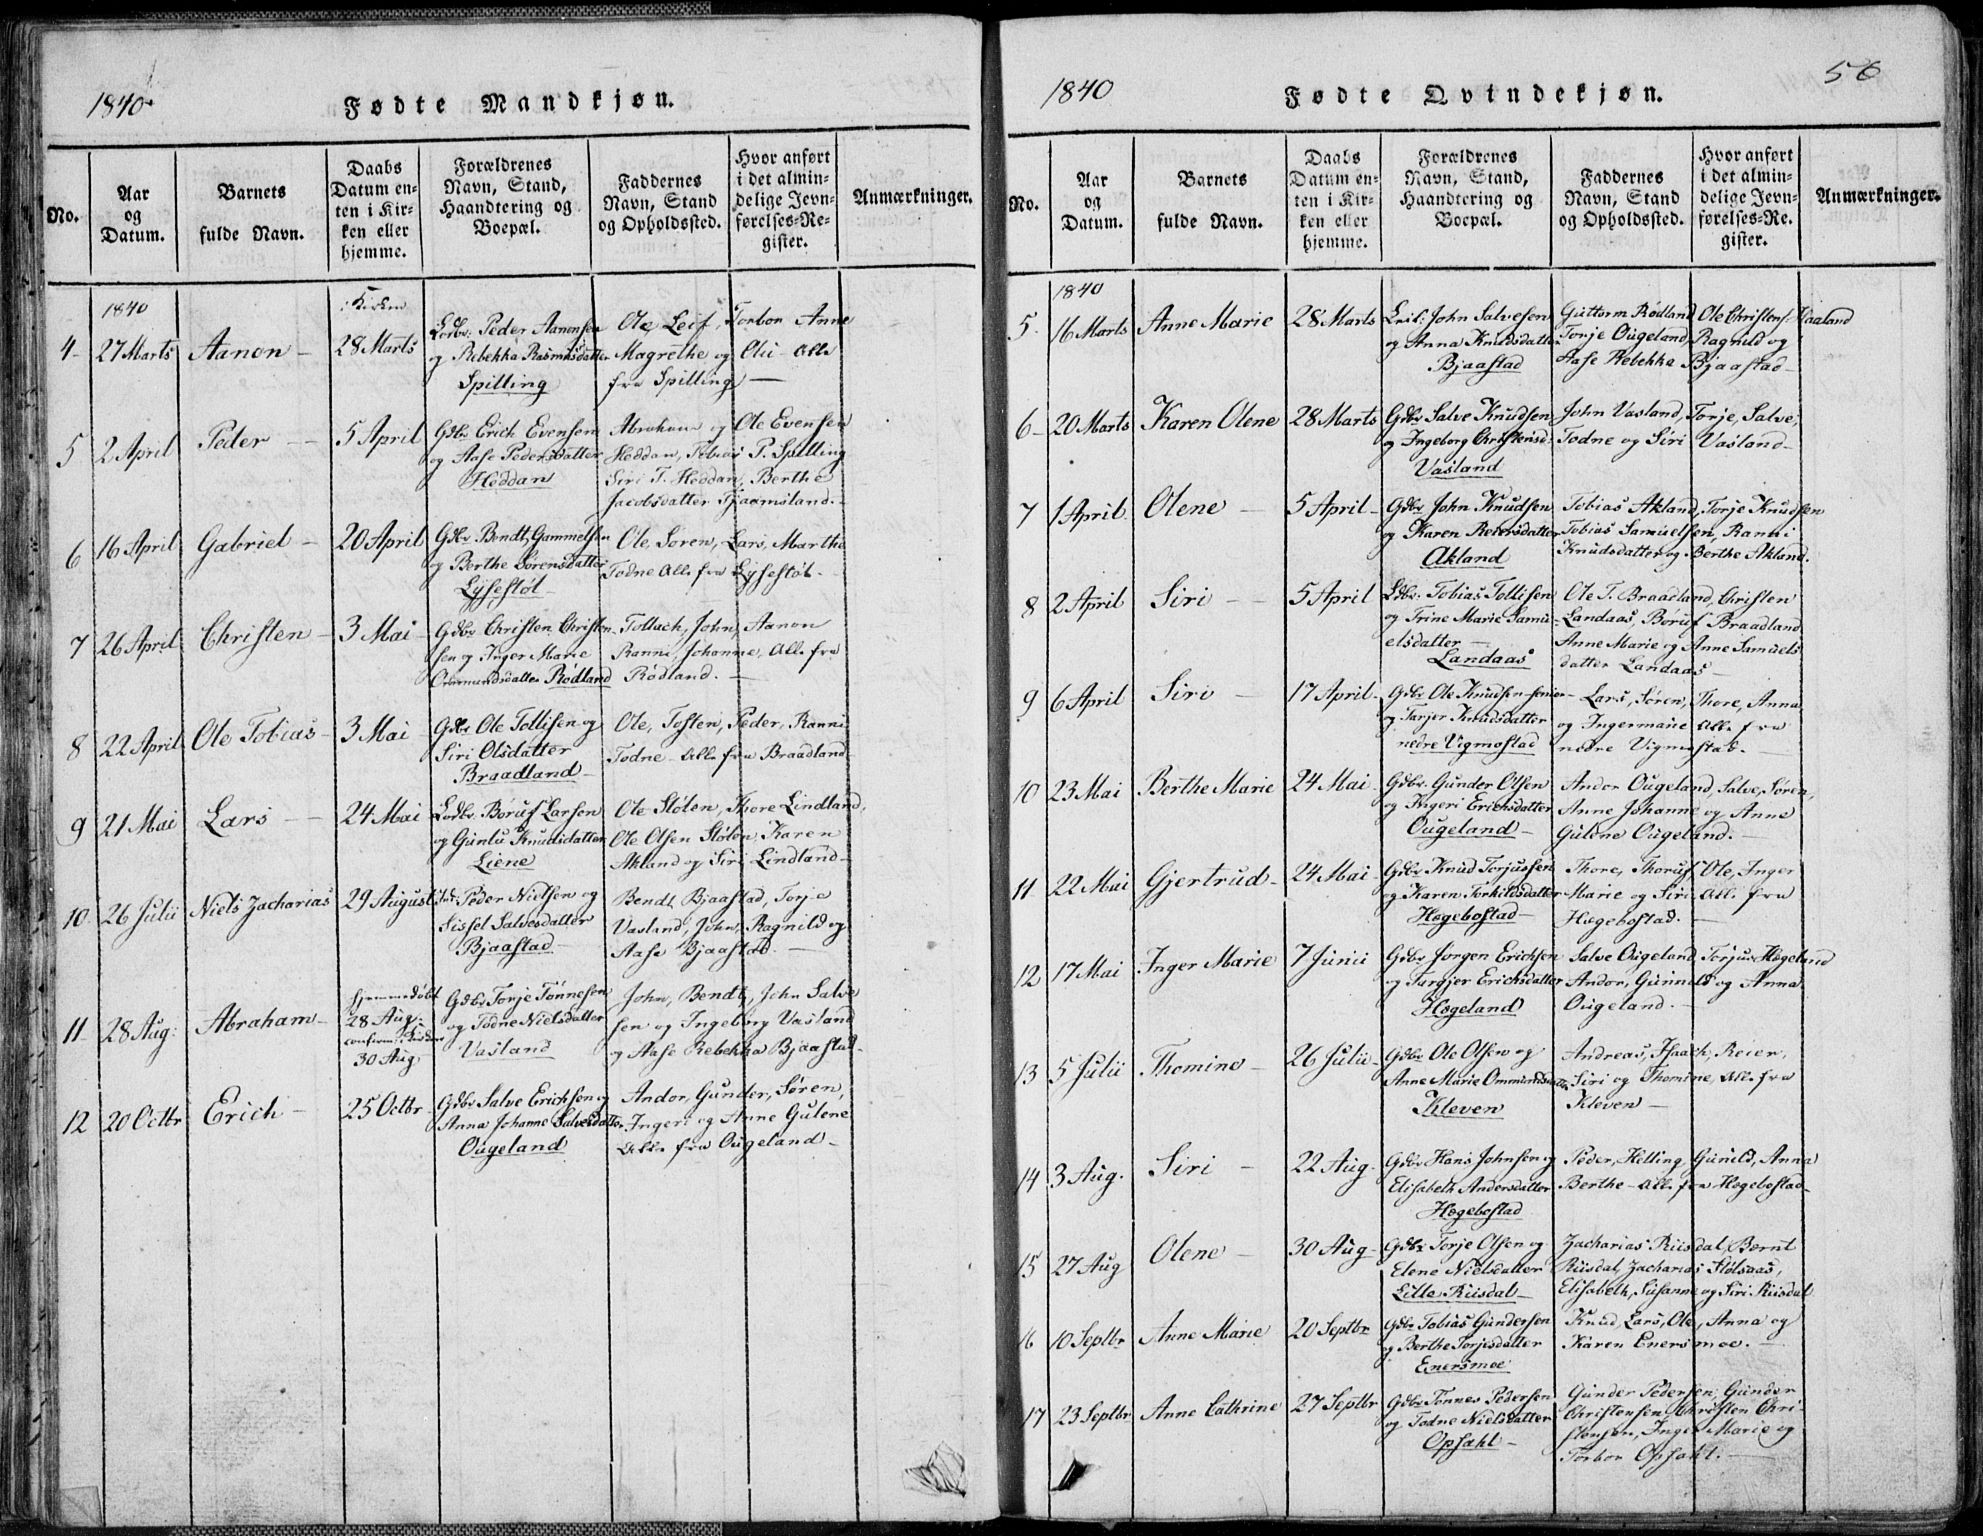 1840
Fødte Mandkjøn.
No.
Aar
og
Datum.
Barnets
fulde Navn.
Daabs
Datum en-
ten i Kir-
ken eller
hjemme.
Forældrenes
Navn, Stand,
Haandtering og
Boepæl.
Faddernes
Navn, Stand
og Opholdssted.
Hvor anført
i det almin-
delige Jevn-
førelses-Re-
gister.
Anmærkninger.
1840
Kirken
4 27 Marts Aanon 28 Marts
Peder Aanonsen
og Rebekka Rasmusdatter
Spilling
Ole, Leif, Torbor Anne
Magrethe og Oli alle
fra Spilling
5 2 April Peder 5 April
Gdbr Erich Evensen
og Aase Pedersdatter
Heddan
Abraham og Ole Evensen
Heddan, Tobias P. Spilling
Siri T. Heddan, Berthe
Jacobsdatter Tjaamsland.
6 16 April Gabriel 20 April
Gdbr Bendt Gammelsen
og Berthe Sørensdatter
Lysestøl
Ole, Søren, Lars, Marthe
Todne Alle fra Lysestøl
7 26 April Christen 3 Mai
Gdbr Christen Christen-
sen og Inger Marie
Ommundsdatter Rødland
Tollach, John, Aanon
Ranni, Johanne, Alle fra
Rødland.
8 22 April Ole Tobias 3 Mai
Gdbr Ole Tollisen og
Siri Olsdatter
Braadland
Ole, Tosten, Peder, Ranni
Todne Alle fra Braadland
9 21 Mai Lars 24 Mai
Børuf Larsen
og Gunlu Knudsdatter
Liene
Ole Stølen, Thore Lindland,
Ole Olsen Stølen, Karen
Akland og Siri Lindland
10 26 Julii Niels Zacharias 29 August
Peder Nielsen og
Sissel Salvesdatter
Bjaastad
Bendt Bjaastad, Torje
Vasland, John, Ragnild og
Aase Bjaastad.
11 28 Aug: Abraham
hjemmedøbt
28 Aug.
confirm: i Kirken
30 Aug.
Gdbr Torje Tønnesen
og Todne Nielsdatter
Vasland
John, Bendt, John Salve
sen og Ingeborg Vasland
og Aase Rebekka Bjaastad
12 20 Octbr Erich 25 Octbr
Gdbr Salve Erichsen og
Anna Johanne Salvesdatter
Ougeland
Andor, Gunder, Søren,
Ingeri og Anne Gulene
Alle fra Ougeland
1840
Fødte Qvindekjøn.
56
No.
Aar
og
Datum.
Barnets
fulde Navn.
Daabs
Datum en-
ten i Kir-
ken eller
hjemme.
Forældrenes
Navn, Stand,
Haandtering og
Boepæl.
Faddernes
Navn, Stand
og Opholdssted.
Hvor anført
i det almin-
delige Jevn-
førelses-Re-
gister.
Anmærkninger.
1840
5 16 Marts Anne Marie 28 Marts
John Salvesen
og Anna Knudsdatter
Bjaastad
Guttorm Rødland Ole Christens: Vaaland
Torje Ougeland, Ragnild og
Aase Rebekka Bjaastad
6 20 Marts Karen Olene 28 Marts
Gdbr Salve Knudsen
og Ingeborg Christensd:
Vasland
John Vasland, Torje, Salve,
Todne og Siri Vasland
7 1 April Olene 5 April
Gdbr John Knudsen
og Karen Reiersdatter
Akland
Tobias Akland, Torje Knudsen
Tobias Samuelsen, Ranni
Knudsdatter og Berthe Akland.
8 2 April Siri 5 April
Tobias Tollisen
og Trine Marie Samu-
elsdatter
Landaas
Ole T. Braadland, Christen
Landaas, Børuf Braadland
Anne Marie og Anne Samuels
datter Landaas
9 6 April Siri 17 April
Gdbr Ole Knudsen senior
og Tarjer Knudsdatter
nedre Vigmostad
Lars, Søren, Thore, Anna
og Ingermarie Alle fra
nedre Vigmostad.
10 23 Mai Berthe Marie 24 Mai
Gdbr. Gunder Olsen
og Ingeri Erichsdatter
Ougeland
Andor Ougeland, Salve, Søren,
Anne Johanne og Anne
Gulene Ougeland.
11 22 Mai Gjertrud 24 Mai
Gdbr Knud Torjussen
og Karen Torkildsdatter
Hægebostad
Thore, Thoruf, Ole, Inger
Marie og Siri Alle fra
Hægebostad.
12 17 Mai Inger Marie 7 Junii
Gdbr Jørgen Erichsen
og Targjer Erichsdatter
Høgeland
Salve Ougeland Torjus Høgeland
Andor, Gunnild og Anna
Ougeland.
13 5 Julii Thomine 26 Julii
Gdbr Ole Olsen og
Anne Marie Ommundsdatter
Kleven
Andreas, Isaach, Reier,
Siri og Thomine, Alle fra
Kleven
14 3 Aug. Siri 22 Aug.
Gdbr Hans Johnsen og
Elisabeth Andersdatter
Hægebostad
Peder, Helling, Gunild, Anna
Berthe Alle fra Hægebostad
15 27 Aug Olene 30 Aug
Gdbr Torje Olsen og
Elene Nielsdatter
Lille Riisdal
Zacharias Riisdal, Bernt
Riisdal, Zacharias Stølsaas,
Elisabeth, Susanne og Siri Riisdal
16 10 Septbr Anne Marie 20 Septbr
Gdbr Tobias Gundersen
og Berthe Torjesdatter
Enersmoe
Knud, Lars, Ole, Anna og
Karen Enersmoe.
17 23 Septbr Anne Cathrine 27 Septbr
Gdbr Tønnes Pedersen
og Todne Nielsdatter
Opsahl
Gunder Pedersen, Gunder
Christensen, Christen Chri-
stensen, Inger Marie og
Torbor Opsahl.